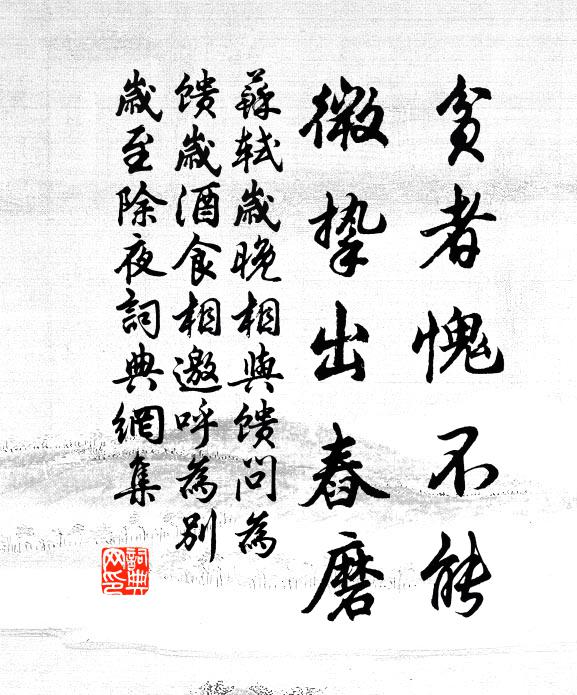 貧者愧不能
微摯出舂磨
蘇軾歲晚相與馈问為
馈歲酒食相邀呼為别
歲至除夜詞典網集
詞典网印